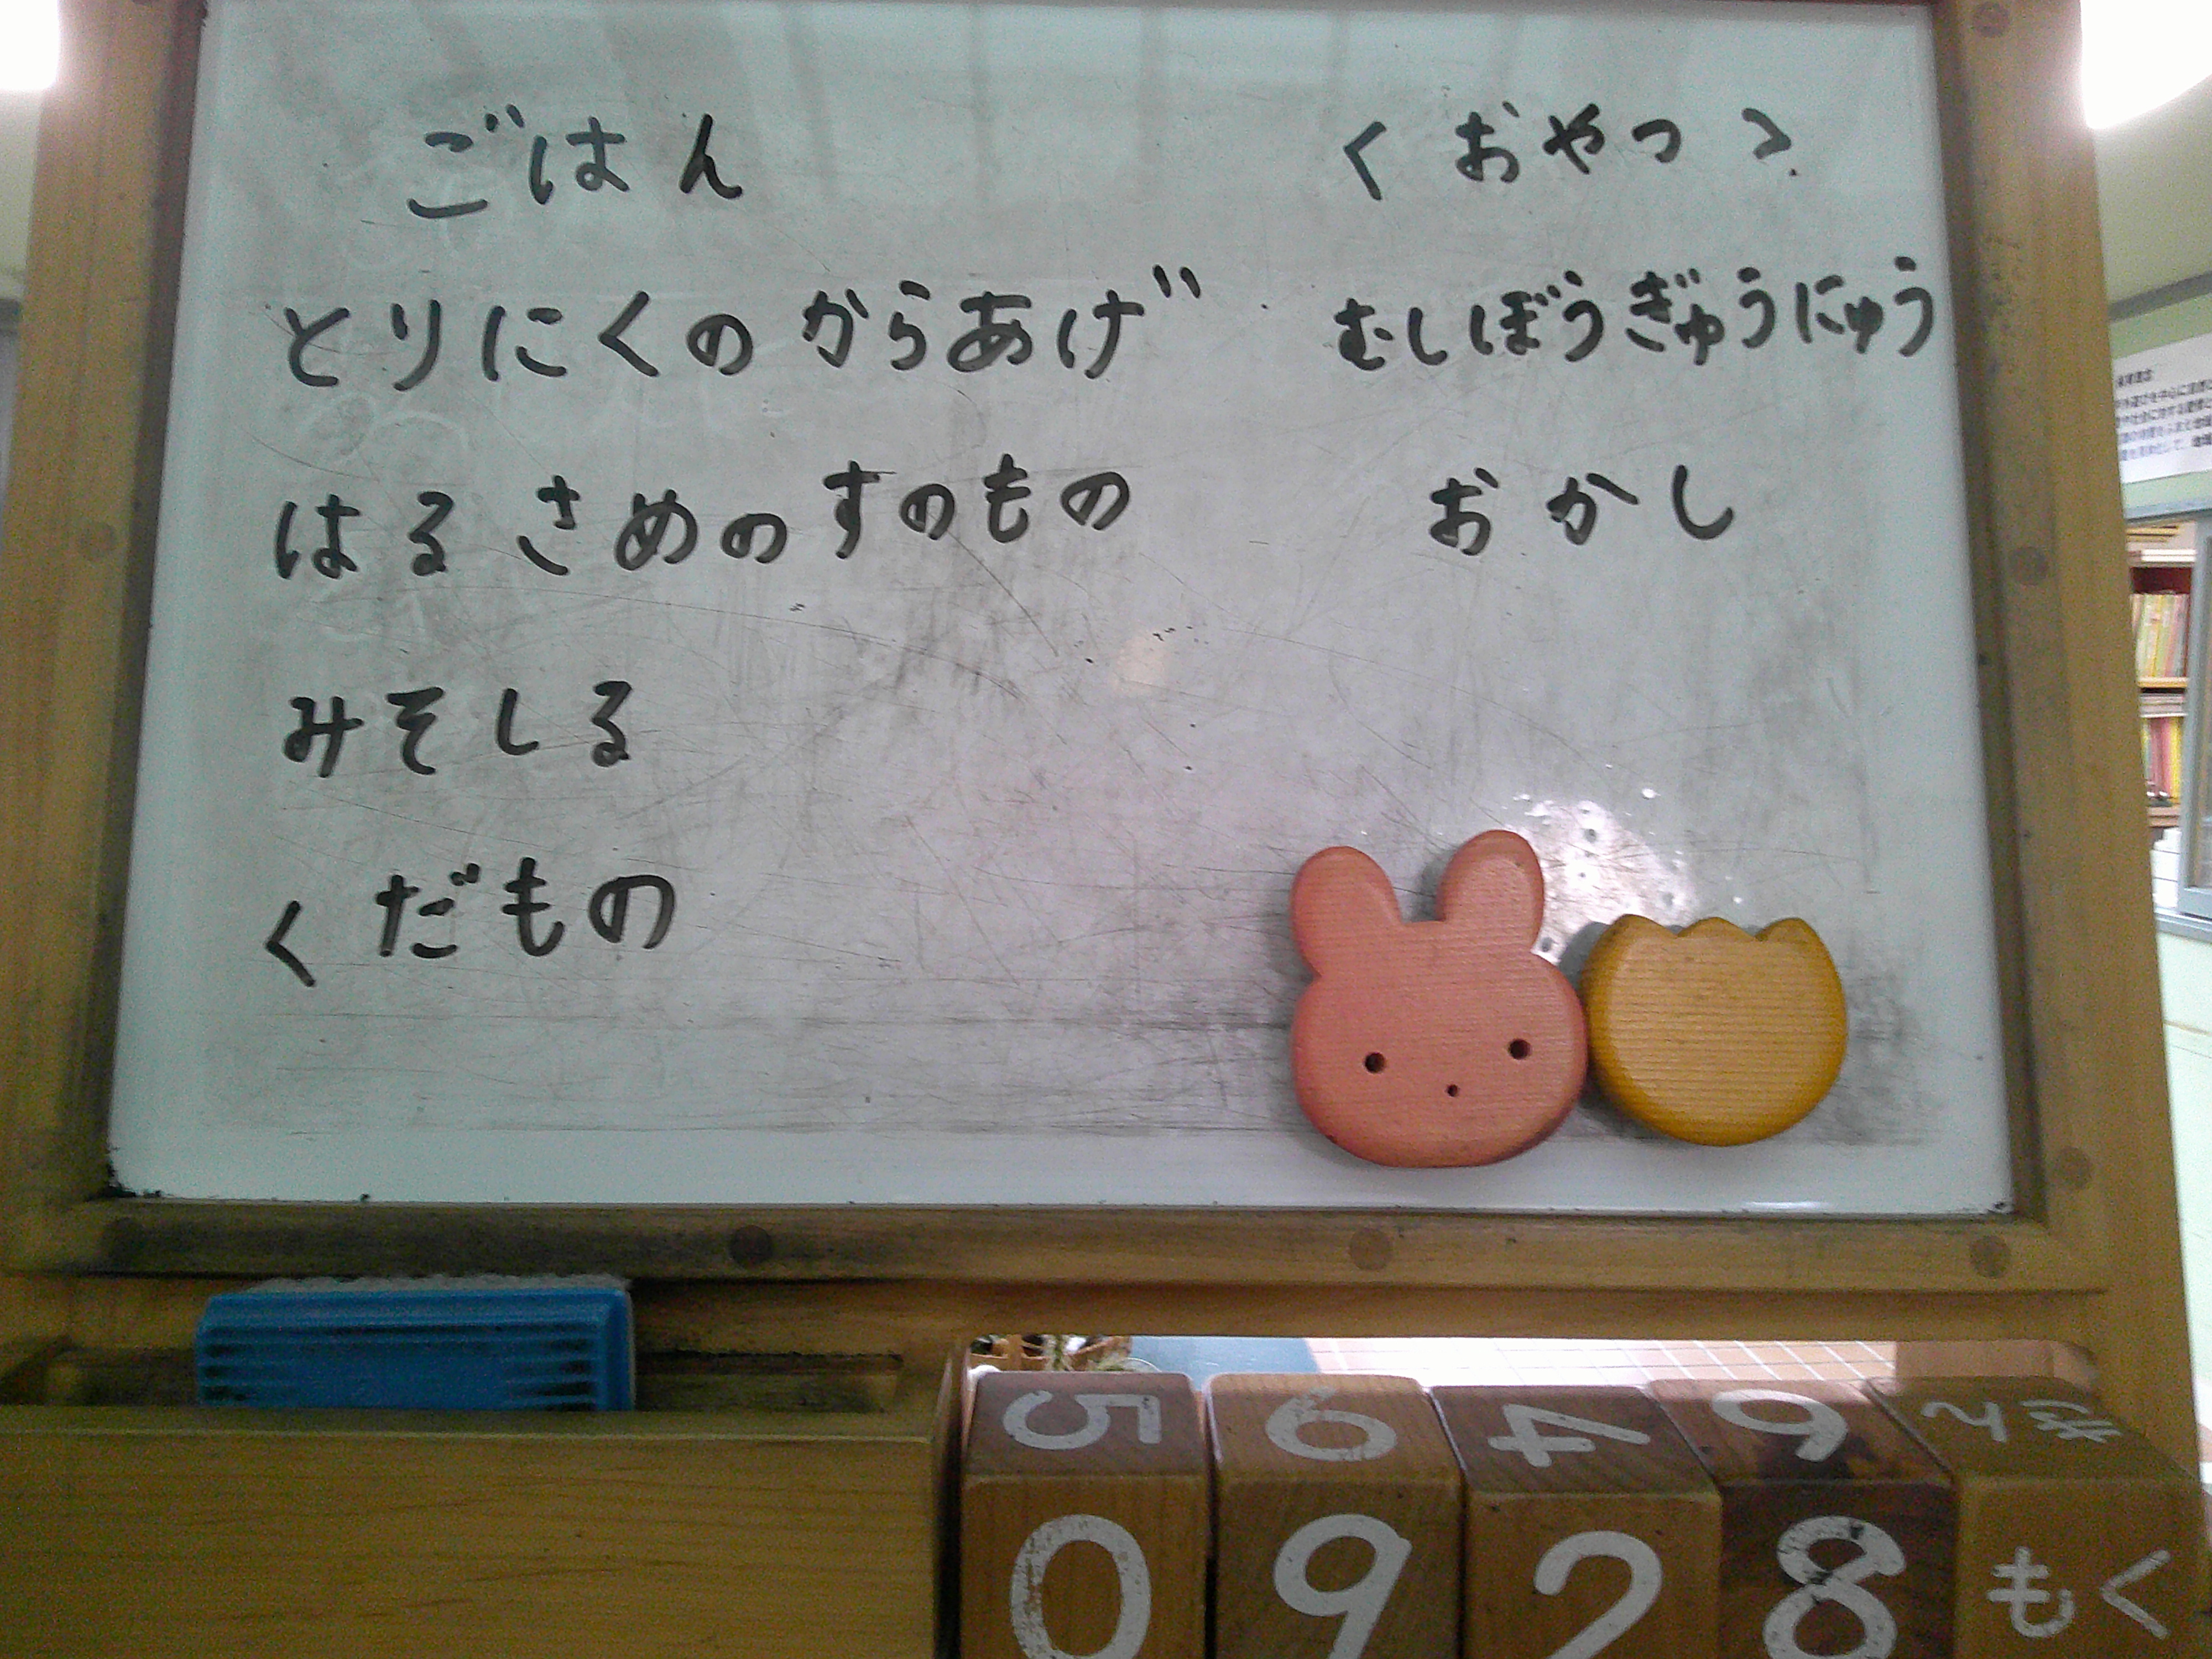 ごはん
とりにくのからあげ
はるさめのすのもの
みそしる
くだもの
<おやつ>
むしぼうぎゅうにゅう
おかし
5 6 4 9
0 9 2 8 もく